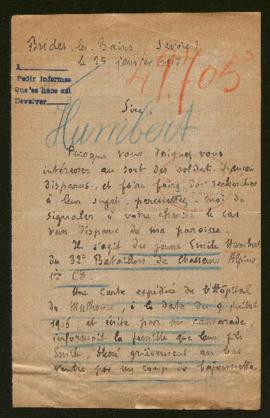 Brides-les-Bains (Savoie)
le 25 janvier 1917
A
Pedir informes
Que se hace así
Devolver
41705
Sire
Humbert
Puisque vous daignez vous
intéresser au sort des soldats français
disparus, et faire faire des recherches
à leur sujet, permettez-moi de
signaler à votre charité le cas
d'un disparu de ma paroisse.
Il s'agit du jeune Emile Humbert
du 32e Bataillon de Chasseurs Alpins
1re Cie
Une carte expédiée de l'Hôpital
de Mulhouse, à la date du 9 juillet
1916 et écrite par un camarade
informait la famille que leur fils
Emile, blessé grièvement au bas
ventre par un coup de baïonnette